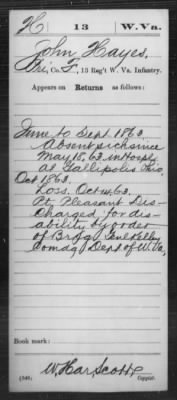 H | 13 | W. Va.
John Hayes.
Pri, Co. F, 13 Reg't W. Va. Infantry.
Appears on Returns as follows:
June to Sept 1863,
Absent sick since
May 18, 63 in Hosp
at Gallipolis Ohio,
Oct 1863.
Loss. Oct 14, 63.
Pt. Pleasant Dis-
charged for dis-
ability by order
of Brig Genl Kelley
Comdg Dept of W. Va,
Book mark:
W. Har Scott
(546) Copyist.